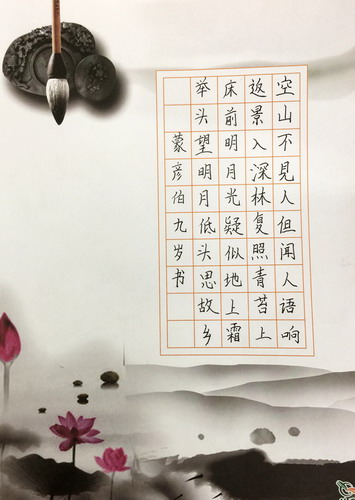 空山不見人但闻人语响
返景入深林复照青苔上
床前明月光疑似地上霜
举头望明月低头思故乡
蒙彦伯九岁书